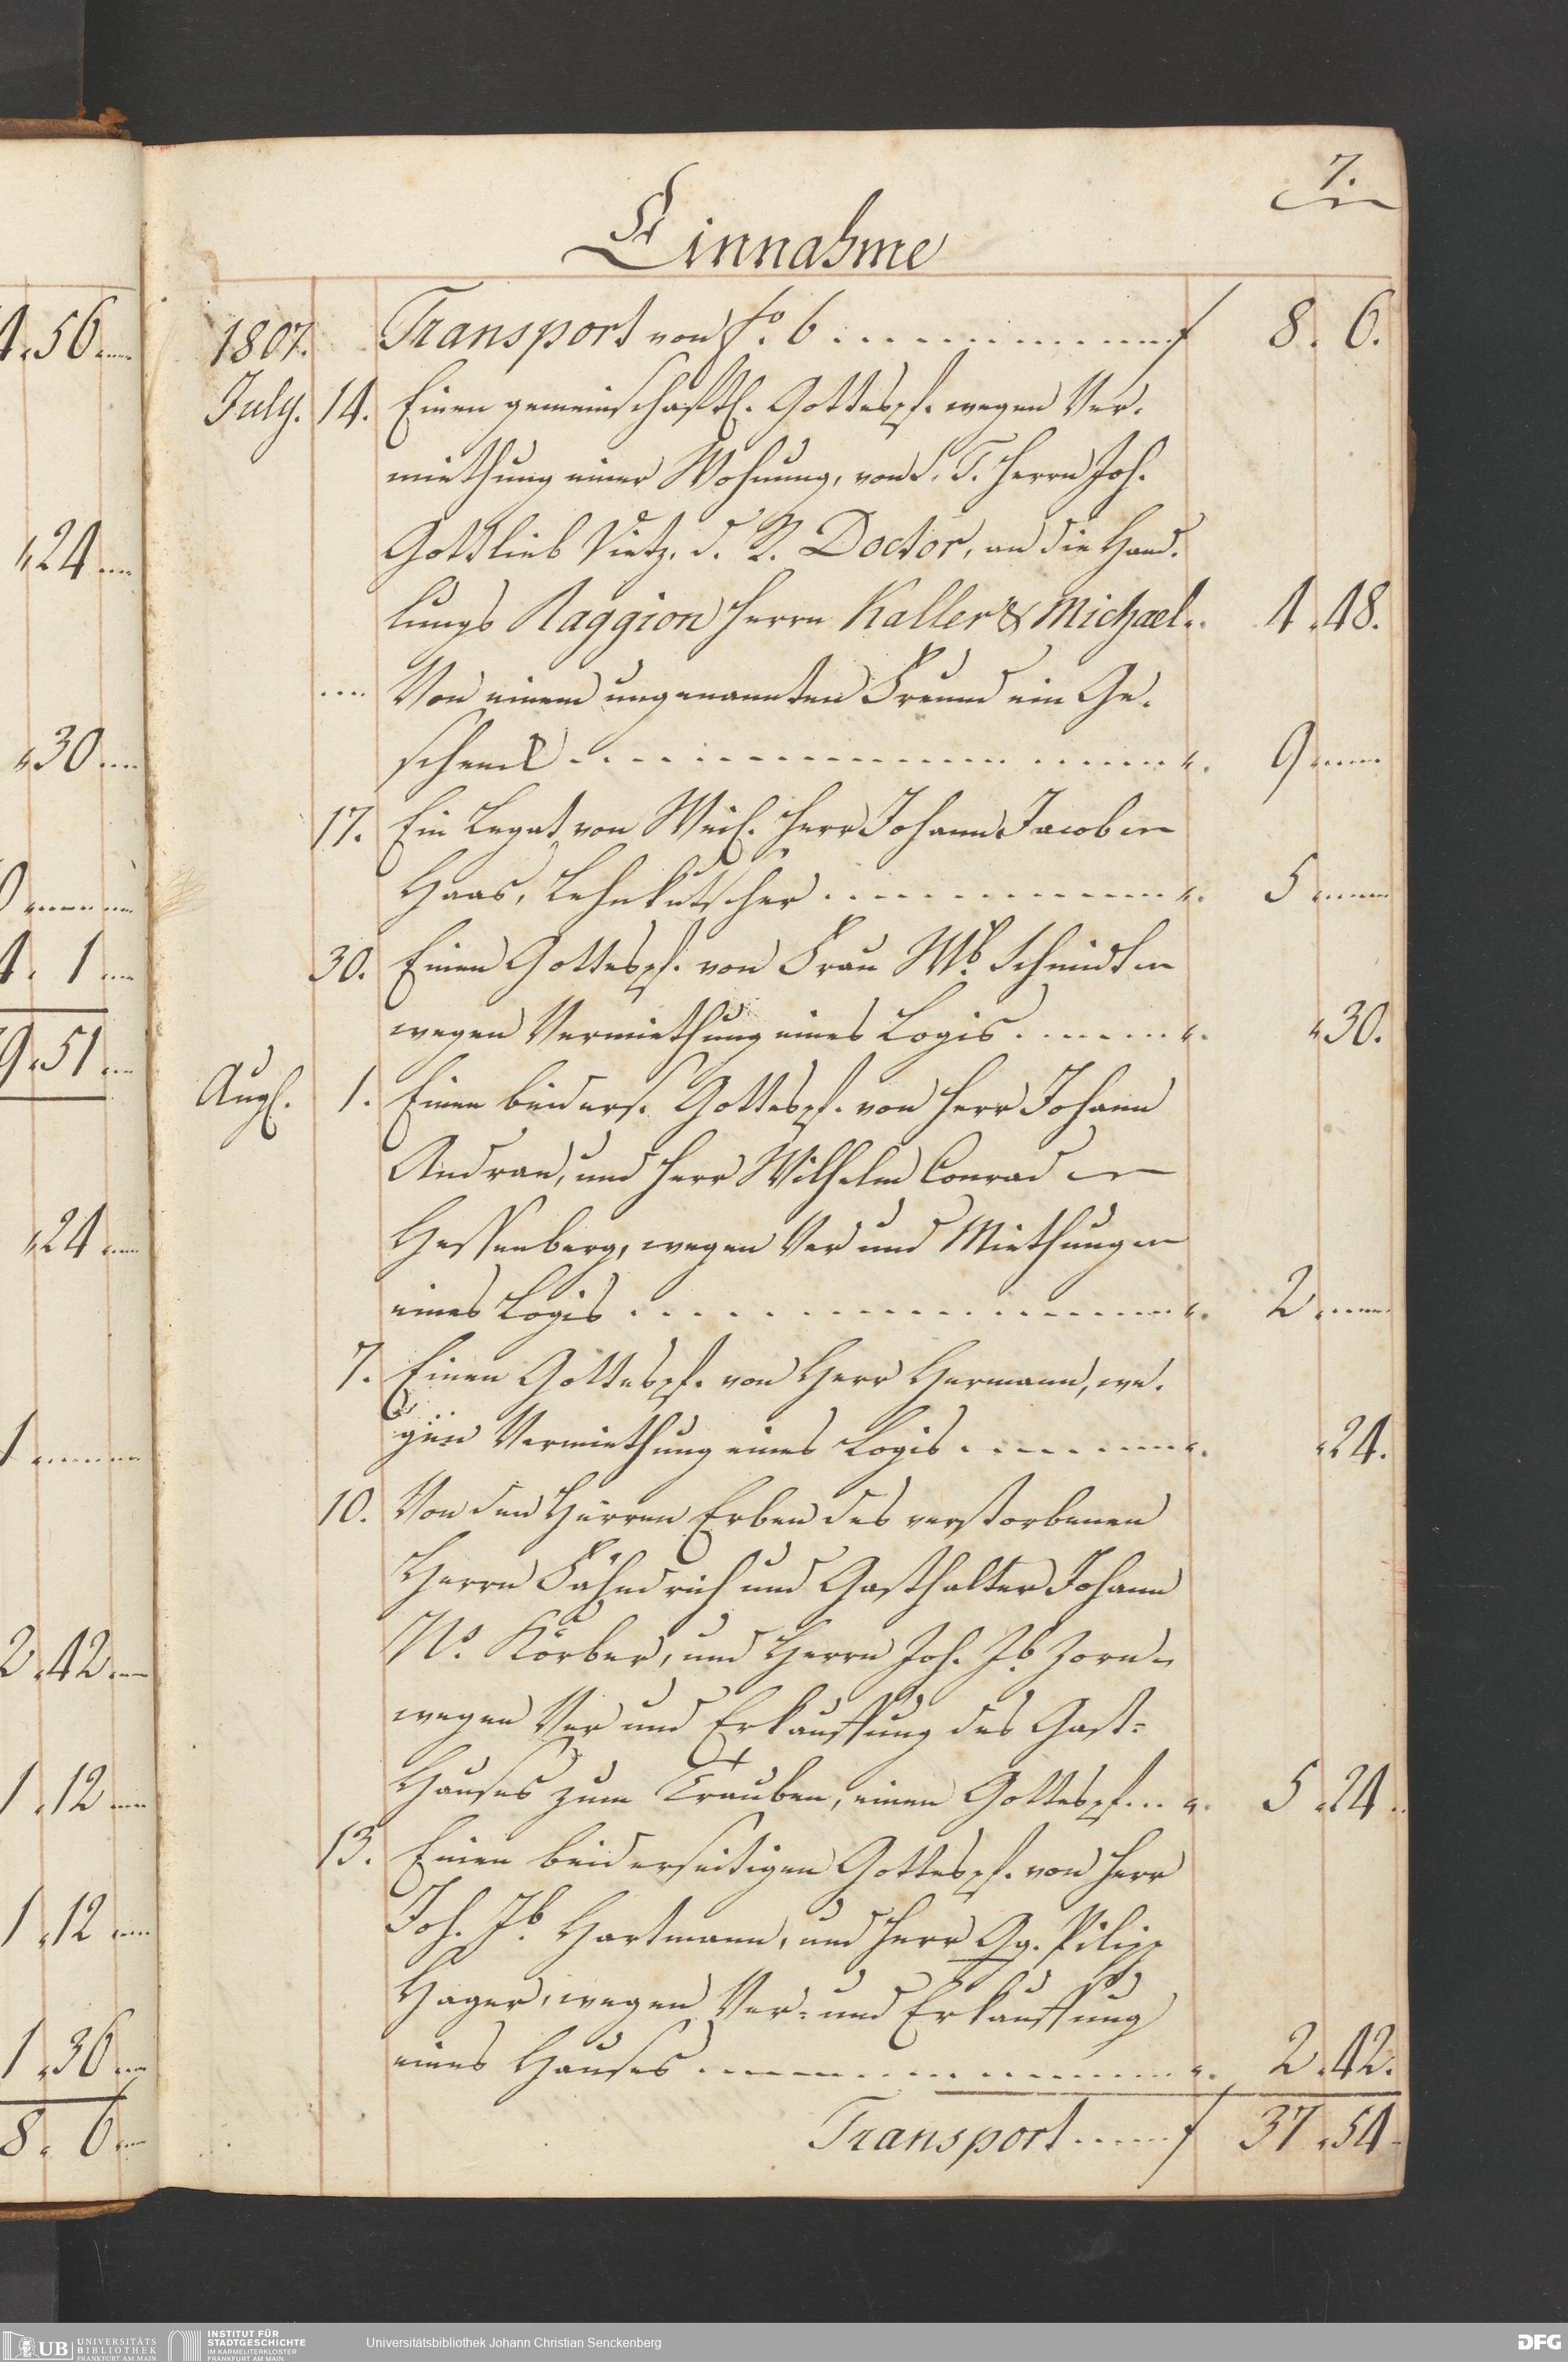 7.
Einnahme
1807. Transport von fo. 6 . . . . . . . . f 8. 6.
July. 14. Einen gemeinschaftl. Gottespf. wegen Ver-
miethung einer Wohnung, von S. T. Herrn Joh.
Gottlieb Dietz. d. R. Doctor, an die Hand-
lungs Raggion Herrn Kaller & Michael „. 4 „48.
.... Von einem ungenannten Freund ein Ge-
schenck . . . . . . . . „. 9 ......
17. Ein Legat von Weil. Herr Johann Jacob
Haas, Lehnkutscher . . . . . . . . „. 5 ......
30. Einen Gottespf. von Frau Wb. Schmidt
wegen Vermiethung eines Logis . . . . . . „. „30.
Augl. 1. Einen beiders. Gottespf. von Herr Johann
Andrae, und Herr Wilhelm Conrad
Hessenberg, wegen Ver und Miethung
eines Logis . . . . . . . . „. 2 ......
7. Einen Gottespf. von Herr Hermann, we-
gen Vermiethung eines Logis . . . . . . „. „24.
10. Von den Herren Erben des verstorbenen
Herrn Fähndrich und Gasthalter Johann
Ns. Körber, und Herrn Joh. Jb. Zorn
wegen Ver und Erkauffung des Gast=
Hauses zum Trauben, einen Gottespf... „. 5 „24.
13. Einen beiderseitigen Gottespf. von Herr
Joh. Jb. Hartmann, und Herr Gg. Pilipp
Hager, wegen Ver= und Erkauffung
eines Hauses . . . . . . . . „. 2 „42.
Transport ...... f 37 „54.
4.56....
„24....
„30....
4. 1....
9.51....
„24....
1 ......
2.42....
1.12....
1.12....
1.36....
8. 6....
UB UNIVERSITÄTS BIBLIOTHEK FRANKFURT AM MAIN
INSTITUT FÜR STADTGESCHICHTE IM KARMELITERKLOSTER FRANKFURT AM MAIN
Universitätsbibliothek Johann Christian Senckenberg
DFG